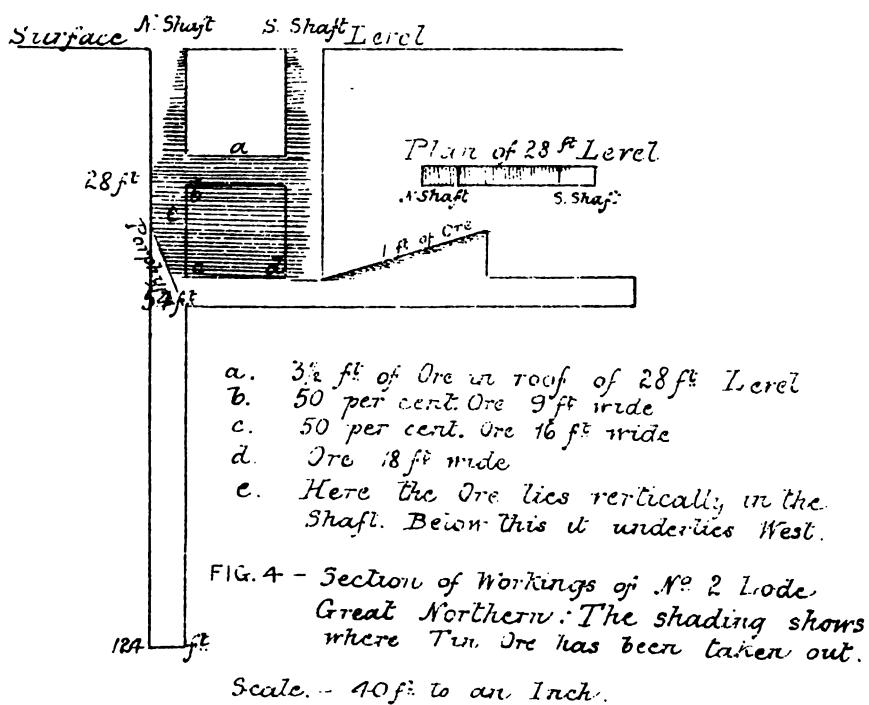 N. Shaft S. Shaft
Surface Level
a
28 ft
b
c
Plan of 28 ft Level
N Shaft S. Shaft
1 ft of Ore
d
54 ft
a. 3½ ft of Ore in roof of 28 ft Level
b. 50 per cent. Ore 9 ft wide
c. 50 per cent. Ore 16 ft wide
d. Ore 18 ft wide
e. Here the Ore lies vertically in the
Shaft. Below this it underlies West.
FIG. 4 – Section of Workings of No. 2 Lode
Great Northern: The shading shows
where Tin Ore has been taken out.
124 ft
Scale. – 40 ft to an Inch.